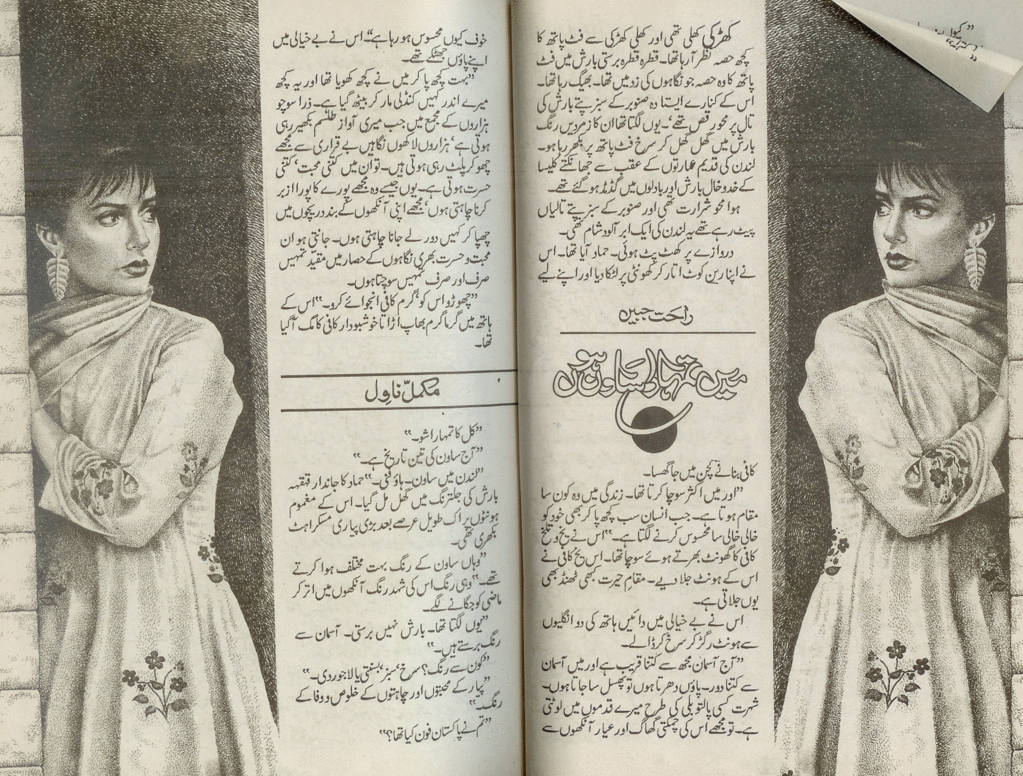 کھڑکی کھلی تھی اور کھلی کھڑکی سے فٹ پاتھ کا
کچھ حصہ نظر آ رہا تھا۔ قطرہ قطرہ برستی بارش میں فٹ
پاتھ کا وہ حصہ جو نگاہوں کی زد میں تھا۔ بھیگ رہا تھا۔
اس کے کنارے ایستادہ صنوبر کے سبز پتے بارش کی
تال پر محو رقص تھے‘۔ یوں لگتا تھا ان کا زمردیں رنگ
بارش میں گھل گھل کر سرخ فٹ پاتھ پر بکھر رہا ہو۔
لندن کی قدیم عمارتوں کے عقب سے جھانکتے کلیسا
کے خدوخال بارش اور بادلوں میں گڈمڈ ہو گئے تھے۔
ہوا محو شرارت تھی اور صنوبر کے سبز پتے تالیاں
پیٹ رہے تھے یہ لندن کی ایک ابر آلود شام تھی۔
دروازے پر کھٹ پٹ ہوئی۔ حماد آیا تھا۔ اس
نے اپنا رین کوٹ اتار کر کھونٹی پر لٹکا دیا اور اپنے لیے
راحت جبین
میں تمہارا ساون ہوں
کافی بنانے کچن میں جا گھسا۔
”اور میں اکثر سوچا کرتا تھا۔ زندگی میں وہ کون سا
مقام ہوتا ہے۔ جب انسان سب کچھ پا کر بھی خود کو
خالی خالی سا محسوس کرنے لگتا ہے۔“ اس نے یخ و تلخ
کافی کا گھونٹ بھرتے ہوئے سوچا تھا۔ اس یخ کافی نے
اس کے ہونٹ جلا دیے۔ مقام حیرت کبھی ٹھنڈ بھی
یوں جلاتی ہے۔
اس نے بے خیالی میں دائیں ہاتھ کی دو انگلیوں
سے ہونٹ رگڑ کر سرخ کر ڈالے۔
”آج آسمان مجھ سے کتنا قریب ہے اور میں آسمان
سے کتنا دور۔ پاؤں دھرتا ہوں تو پھسل سا جاتا ہوں۔
شہرت کسی پالتو بلی کی طرح میرے قدموں میں لوٹتی
ہے۔ تو مجھے اس کی چمکتی گھاگ اور عیار آنکھوں سے
خوف کیوں محسوس ہو رہا ہے“ اس نے بے خیالی میں
اپنے پاؤں جھٹکے تھے۔
”بہت کچھ پا کر میں نے کچھ کھویا تھا اور یہ کچھ
میرے اندر کہیں کنڈلی مار کر بیٹھ گیا ہے۔ ذرا سوچو
ہزاروں کے مجمع میں جب میری آواز طلسم بکھیر رہی
ہوتی ہے‘ ہزاروں لاکھوں نگاہیں بے قراری سے مجھے
چھو کر پلٹ رہی ہوتی ہیں۔ تو ان میں کتنی محبت‘ کتنی
حسرت ہوتی ہے۔ یوں جیسے وہ مجھے پورے کا پورا ازبر
کرنا چاہتی ہوں‘ مجھے اپنی آنکھوں کے بند دریچوں میں
چھپا کر کہیں دور لے جانا چاہتی ہوں۔ جانتی ہو ان
محبت و حسرت بھری نگاہوں کے حصار میں مقید تمہیں
صرف اور صرف تمہیں سوچتا ہوں۔
”چھوڑو اس کو‘ گرم کافی انجوائے کرو۔“ اس کے
ہاتھ میں گرما گرم بھاپ اڑاتا خوشبودار کافی کا مگ آ گیا
تھا۔
مکمل ناول
”کل کا تمہارا شو۔“
”آج ساون کی تین تاریخ ہے۔“
”لندن میں ساون۔ ہاؤ فنی۔“ حماد کا جاندار قہقہہ
بارش کی جلترنگ میں گھل مل گیا۔ اس کے مغموم
ہونٹوں پر اک طویل عرصے بعد بڑی پیاری مسکراہٹ
بکھری تھی۔
”وہاں ساون کے رنگ بہت مختلف ہوا کرتے
تھے۔“ وہی رنگ اس کی شہد رنگ آنکھوں میں اتر کر
ماضی کو جگانے لگے۔
”یوں لگتا تھا۔ بارش نہیں برستی۔ آسمان سے
رنگ برستے ہیں۔“
”کون سے رنگ؟ سرخ‘ سبز‘ بسنتی یا لاجوردی۔“
”پیار کے محبتوں اور چاہتوں کے خلوص و وفا کے
رنگ۔“
”تم نے پاکستان فون کیا تھا؟“